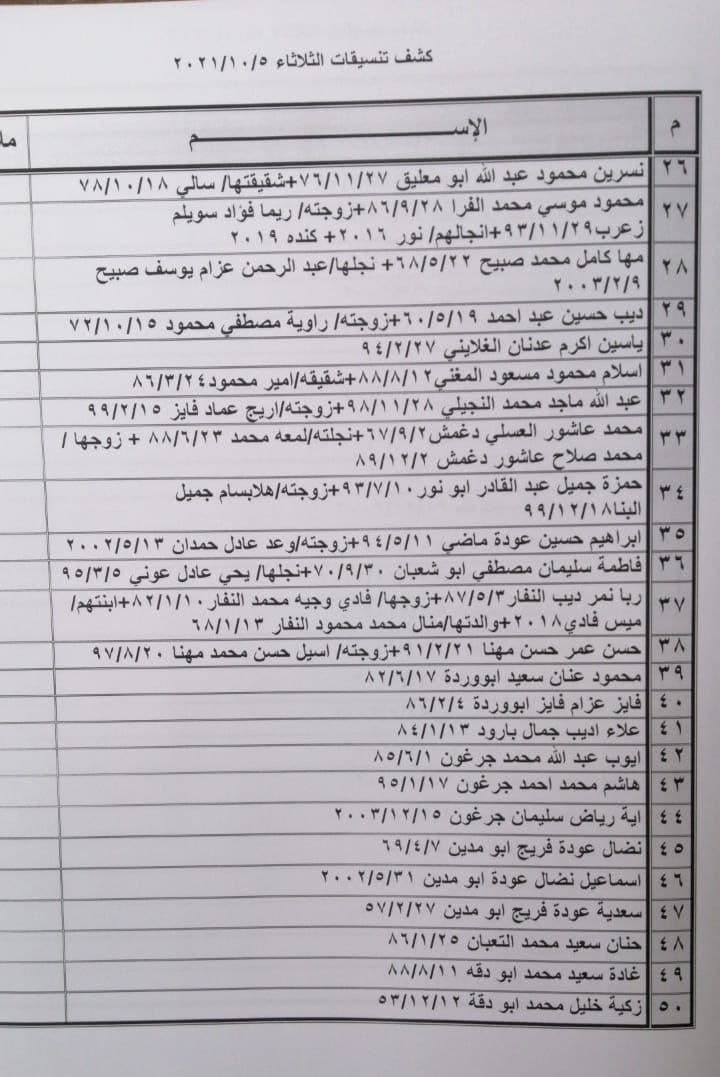 كشف تنسيقات الثلاثاء ٢٠٢١/١٠/٥
م الإســـــــــــــــــــــــم
٢٦ نسرين محمود عبد الله ابو معليق ٧٦/١١/٢٧+شقيقتها/ سالي ٧٨/١٠/١٨
٢٧ محمود موسي محمد الفرا ٨٦/٩/٢٨+زوجته/ ريما فؤاد سويلم
زعرب٩٣/١١/٢٩+انجالهم/ نور ٢٠١٦+ كنده ٢٠١٩
٢٨ مها كامل محمد صبيح ٦٨/٥/٢٢+ نجلها/عبد الرحمن عزام يوسف صبيح
٢٠٠٣/٢/٩
٢٩ ديب حسين عبد احمد ٦٠/٥/١٩+زوجته/ راوية مصطفي محمود ٧٢/١٠/١٥
٣٠ ياسين اكرم عدنان الغلايني ٩٤/٢/٢٧
٣١ اسلام محمود مسعود المغني٨٨/٨/١٢+شقيقه/امير محمود٨٦/٣/٢٤
٣٢ عبد الله ماجد محمد النجيلي ٩٨/١١/٢٨+زوجته/اريج عماد فايز ٩٩/٢/١٥
٣٣ محمد عاشور العسلي دغمش٦٧/٩/٢+نجلته/لمعه محمد ٨٨/٦/٢٣ + زوجها /
محمد صلاح عاشور دغمش ٨٩/١٢/٢
٣٤ حمزة جميل عبد القادر ابو نور٩٣/٧/١٠+زوجته/هلابسام جميل
البنا٩٩/١٢/١٨
٣٥ ابراهيم حسين عودة ماضي ٩٤/٥/١١+زوجته/وعد عادل حمدان ٢٠٠٢/٥/١٣
٣٦ فاطمة سليمان مصطفي ابو شعبان ٧٠/٩/٣٠+نجلها/ يحي عادل عوني ٩٥/٣/٥
٣٧ ربا نمر ديب النفار٨٧/٥/٣+زوجها/ فادي وجيه محمد النفار٨٢/١/١٠+ابنتهم/
ميس فادي٢٠١٨+والدتها/منال محمد محمود النفار ٦٨/١/١٣
٣٨ حسن عمر حسن مهنا ٩١/٢/٢١+زوجته/ اسيل حسن محمد مهنا ٩٧/٨/٢٠
٣٩ محمود عنان سعيد ابووردة ٨٢/٦/١٧
٤٠ فايز عزام فايز ابووردة ٨٦/٢/٤
٤١ علاء اديب جمال بارود ٨٤/١/١٣
٤٢ ايوب عبد الله محمد جرغون ٨٥/٦/١
٤٣ هاشم محمد احمد جرغون ٩٥/١/١٧
٤٤ اية رياض سليمان جرغون ٢٠٠٣/١٢/١٥
٤٥ نضال عودة فريج ابو مدين ٦٩/٤/٧
٤٦ اسماعيل نضال عودة ابو مدين ٢٠٠٢/٥/٣١
٤٧ سعدية عودة فريج ابو مدين ٥٧/٢/٢٧
٤٨ حنان سعيد محمد التعبان ٨٦/١/٢٥
٤٩ غادة سعيد محمد ابو دقه ٨٨/٨/١١
٥٠ زكية خليل محمد ابو دقة ٥٣/١٢/١٢